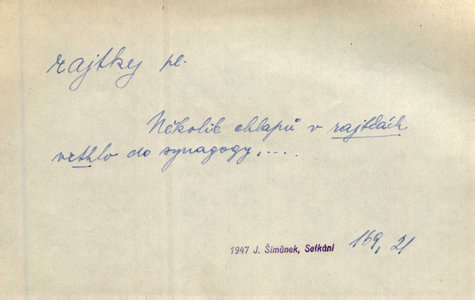 rajtky pl.
Několik chlapů v rajtkách
vrthlo do synagogy,....
1947 J. Šimůnek, Setkání 169, 21